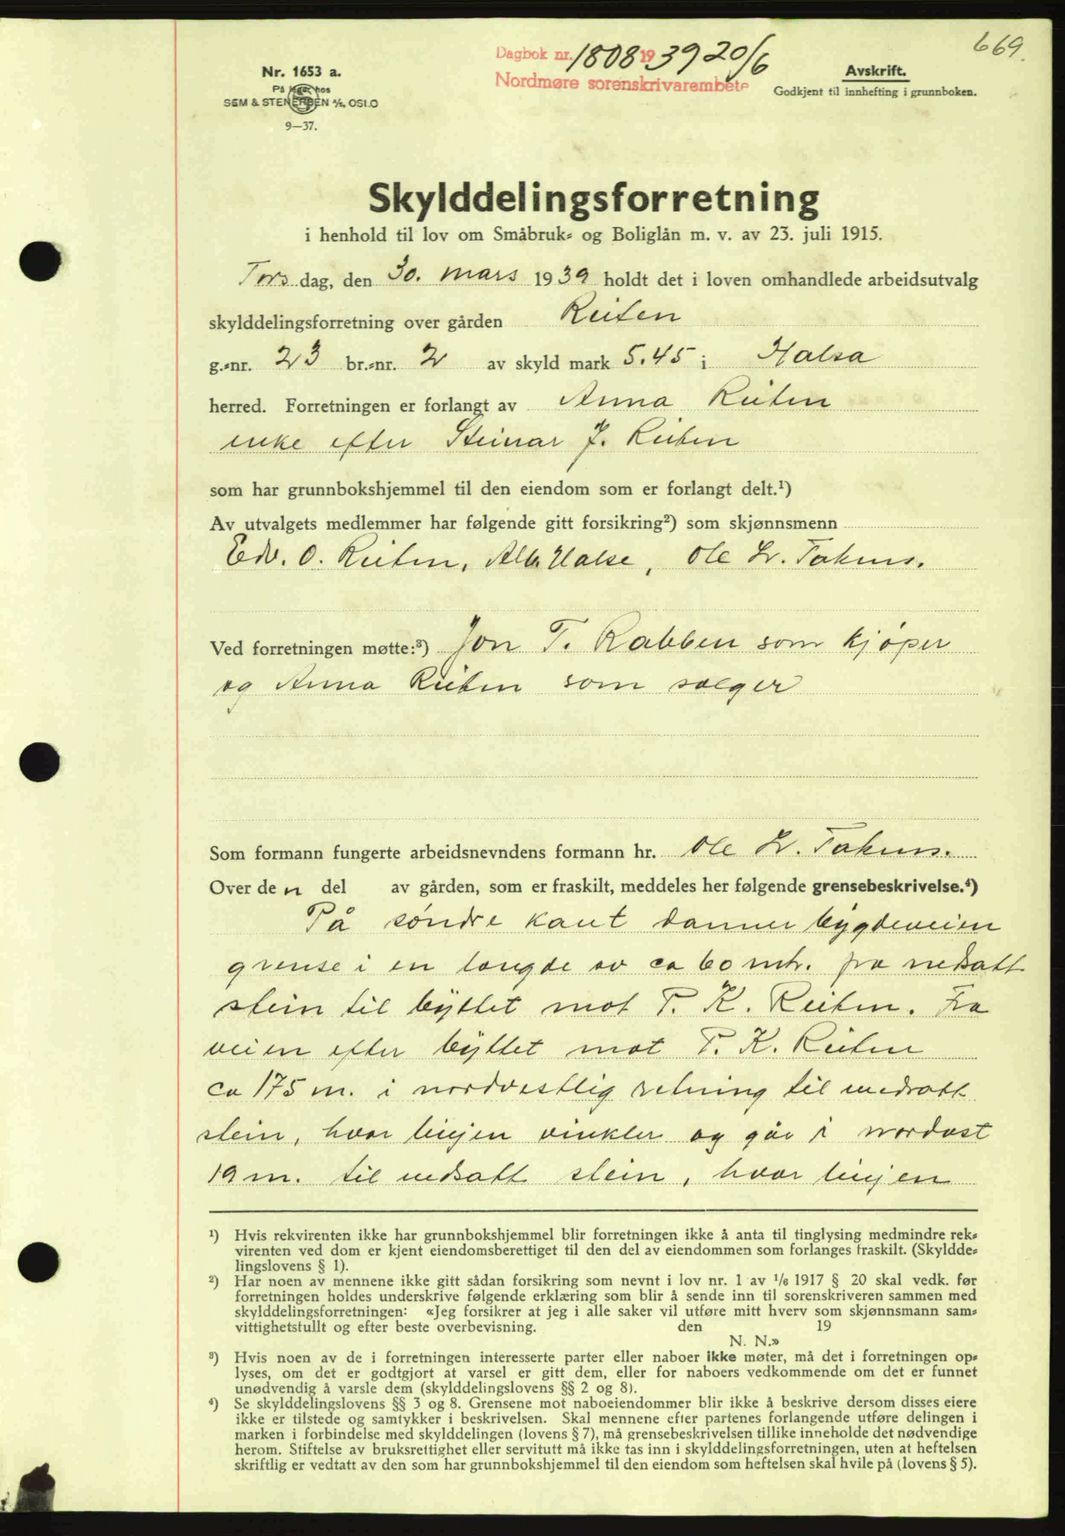 669.
Dagbok nr. 1808 1939 20/6
Nordmøre sorenskrivarembete
Nr. 1653 a.
På lager hos
SEM & STENERSEN A/S, OSLO
9—37.
Avskrift.
Godkjent til innhefting i grunnboken.
Skylddelingsforretning
i henhold til lov om Småbruk- og Boliglån m. v. av 23. juli 1915.
Tors dag, den 30. mars 1939 holdt det i loven omhandlede arbeidsutvalg
skylddelingsforretning over gården Reiten
g.-nr. 23 br.-nr. 2 av skyld mark 5.45 i Halsa
herred. Forretningen er forlangt av Anna Reiten
enke efter Steinar J. Reiten
som har grunnbokshjemmel til den eiendom som er forlangt delt.¹)
Av utvalgets medlemmer har følgende gitt forsikring²) som skjønnsmenn
Edv. O. Reiten, Alb. Halse, Ole L. Taknes.
Ved forretningen møtte:³) Jon T. Rabben som kjøper
og Anna Reiten som sælger
Som formann fungerte arbeidsnevndens formann hr. Ole L. Taknes.
Over den del av gården, som er fraskilt, meddeles her følgende grensebeskrivelse.⁴)
På søndre kant danner bygdeveien
grense i en længde av ca 60 mtr. fra nedsatt
stein til byttet mot P. K. Reiten. Fra
veien efter byttet mot P. K. Reiten
ca 175 m. i nordvestlig retning til nedsatt
stein, hvor linjen vinkler og går i nordøst
19 m. til nedsatt stein, hvor linjen
¹) Hvis rekvirenten ikke har grunnbokshjemmel blir forretningen ikke å anta til tinglysing medmindre rek-
virenten ved dom er kjent eiendomsberettiget til den del av eiendommen som forlanges fraskilt. (Skyldde-
lingslovens § 1).
²) Har noen av mennene ikke gitt sådan forsikring som nevnt i lov nr. 1 av 1/6 1917 § 20 skal vedk. før
forretningen holdes underskrive følgende erklæring som blir å sende inn til sorenskriveren sammen med
skylddelingsforretningen: «Jeg forsikrer at jeg i alle saker vil utføre mitt hverv som skjønnsmann sam-
vittighetsfullt og efter beste overbevisning. den 19
N. N.»
³) Hvis noen av de i forretningen interesserte parter eller naboer ikke møter, må det i forretningen op-
lyses, om det er godtgjort at varsel er gitt dem, eller for naboers vedkommende om det er funnet
unødvendig å varsle dem (skylddelingslovens §§ 2 og 8).
⁴) Se skylddelingslovens §§ 3 og 8. Grensene mot naboeiendommer blir ikke å beskrive dersom disses eiere
ikke er tilstede og samtykker i beskrivelsen. Skal mennene efter partenes forlangende utføre delingen i
marken i forbindelse med skylddelingen (lovens § 7), må grensebeskrivelsen tillike inneholde det nødvendige
herom. Stiftelse av bruksrettighet eller servitutt må ikke tas inn i skylddelingsforretningen, uten at heftelsen
skriftlig er vedtatt av den som har grunnbokshjemmel til den eiendom som heftelsen skal hvile på (lovens § 5).